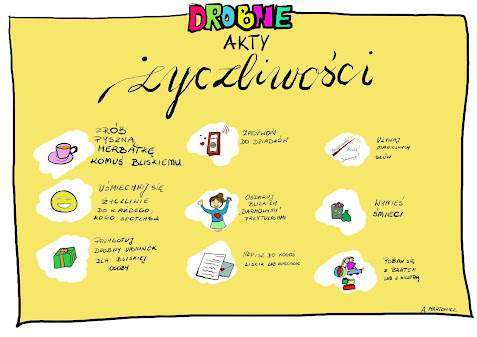 DROBNE
AKTY
życzliwości
ZRÓB
PYSZNĄ
HERBATKĘ
KOMUŚ BLISKIEMU
ZADZWOŃ
DO DZIADKÓW
UŻYWAJ
MAGICZNYCH
SŁÓW
UŚMIECHNIJ SIĘ
ŻYCZLIWIE
DO KAŻDEGO
KOGO SPOTKASZ
OBDARUJ
BLISKICH
„DARMOWYMI"
PRZYTULASAMI
WYNIEŚ
ŚMIECI
PRZYGOTUJ
DROBNY UPOMINEK
DLA BLISKIEJ
OSOBY
NAPISZ DO KOGOŚ
LIŚCIK LUB WIADOMOŚĆ
POBAW SIĘ
Z BRATEM
LUB Z SIOSTRĄ